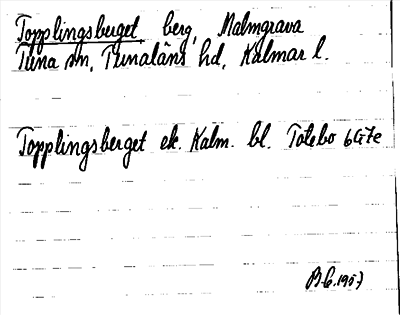 Topplingsberget, berg, Malmgrava
Tuna sn, Tunaläns hd, Kalmar l.
Topplingsberget ek. Kalm. bl. Totebo 6G7e
1957